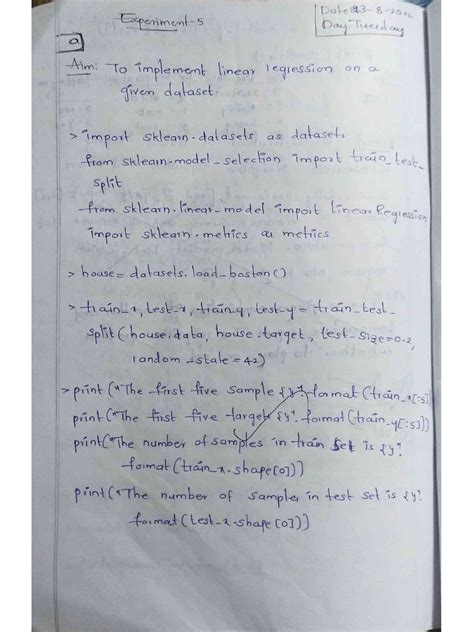 Experiment-5
Day Tuesday
a
Aim: To implement linear regression on a
given dataset.
> import sklearn.datasets as datasets
from sklearn.model_selection import train_test_
split
from sklearn.linear_model import LinearRegression
import sklearn.metrics as metrics
> house = datasets.load_boston()
> train_x, test_x, train_y, test_y = train_test_
split(house.data, house.target, test_size=0.2,
random_state=42)
> print("The first five sample {}".format(train_x[:5])
print("The first five target {}".format(train_y[:5]))
print("The number of samples in train set is {}".
format(train_x.shape[0]))
print("The number of samples in test set is {}".
format(test_x.shape[0]))